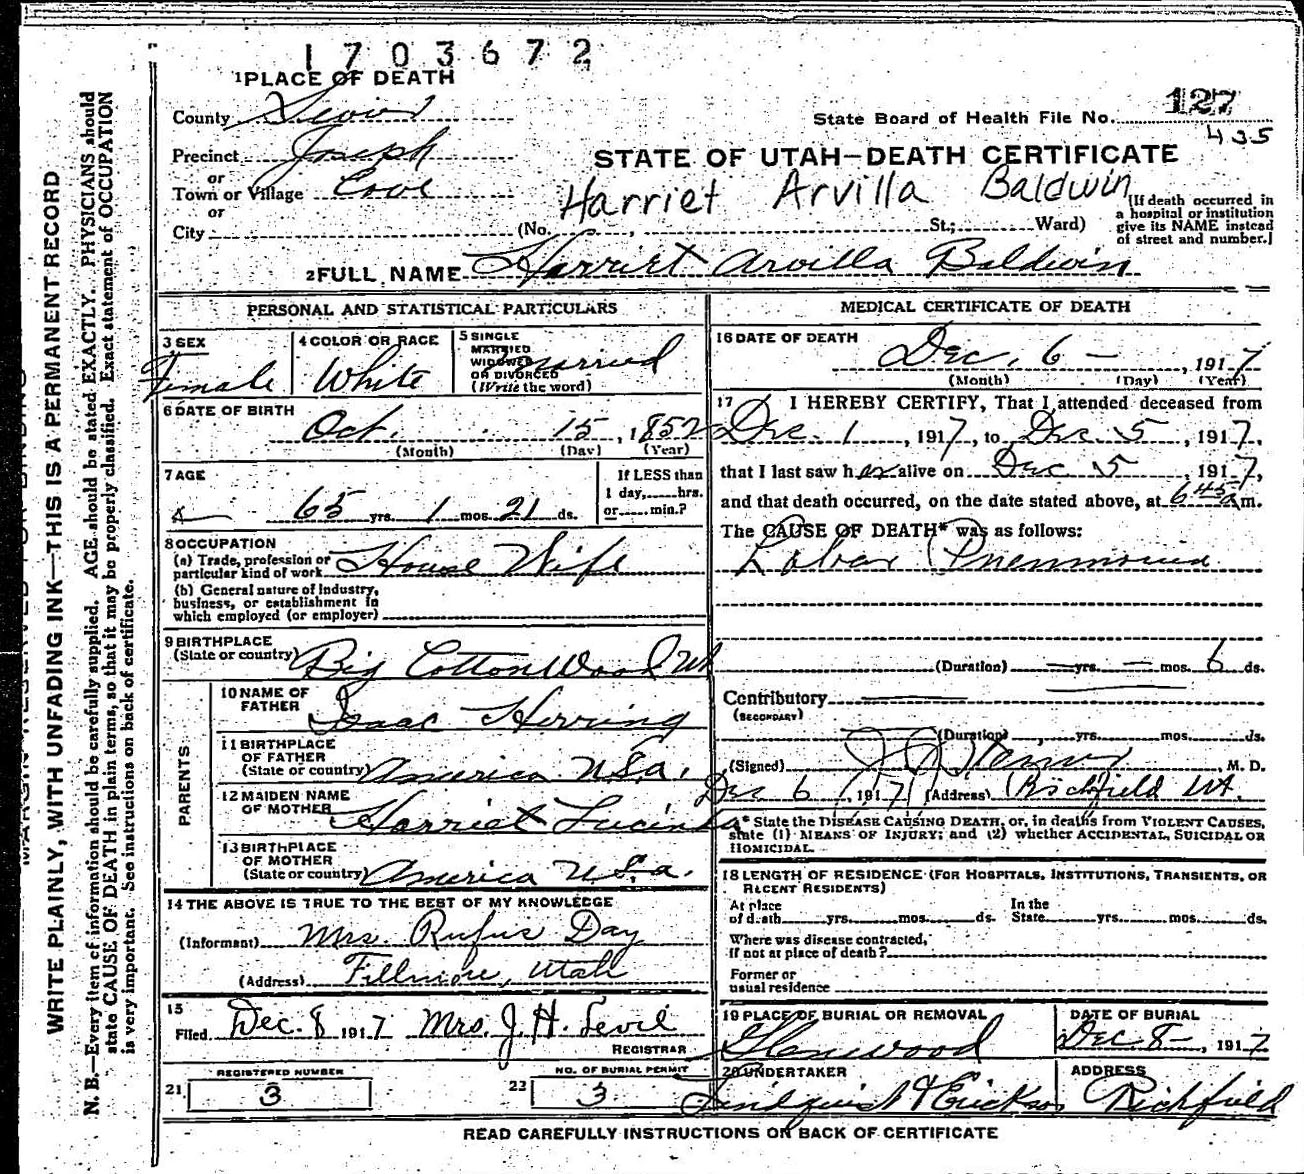 1703672
1 PLACE OF DEATH
County Sevier
State Board of Health File No. 127
435
Precinct Joseph
STATE OF UTAH—DEATH CERTIFICATE
or
Town or Village Cove
Harriet Arvilla Baldwin
or
City (No. , St.; Ward)
[If death occurred in
a hospital or institution
give its NAME instead
of street and number.]
2 FULL NAME Harriet Arvilla Baldwin
PERSONAL AND STATISTICAL PARTICULARS
3 SEX
Female
4 COLOR OR RACE
White
5 SINGLE
MARRIED
WIDOWED
OR DIVORCED
(Write the word)
Married
6 DATE OF BIRTH
Oct. 15, 1852
(Month) (Day) (Year)
7 AGE
65 yrs. 1 mos. 21 ds.
If LESS than
1 day, hrs.
or min.?
8 OCCUPATION
(a) Trade, profession or
particular kind of work House Wife
(b) General nature of industry,
business, or establishment in
which employed (or employer)
9 BIRTHPLACE
(State or country) Big CottonWood Ut
PARENTS
10 NAME OF
FATHER Isaac Herring
11 BIRTHPLACE
OF FATHER
(State or country) America U.S.a.
12 MAIDEN NAME
OF MOTHER Harriet Lucinda
13 BIRTHPLACE
OF MOTHER
(State or country) America U.S.a.
14 THE ABOVE IS TRUE TO THE BEST OF MY KNOWLEDGE
(Informant) Mrs. Rufus Day
(Address) Fillmore, Utah
15
Filed Dec. 8 1917 Mrs. J. H. Levil
REGISTRAR
REGISTERED NUMBER
21 3
NO. OF BURIAL PERMIT
22 3
MEDICAL CERTIFICATE OF DEATH
16 DATE OF DEATH
Dec. 6 — , 1917
(Month) (Day) (Year)
17 I HEREBY CERTIFY, That I attended deceased from
Dec. 1 , 1917, to Dec. 5 , 1917,
that I last saw her alive on Dec 5 , 1917,
and that death occurred, on the date stated above, at 6 45 a m.
The CAUSE OF DEATH* was as follows:
Lobar Pneumonia
(Duration) — yrs. — mos. 6 ds.
Contributory
(SECONDARY)
(Duration) , yrs. mos. ds.
(Signed) M. D.
Dec 6 , 1917 (Address) Richfield Ut.
* State the DISEASE CAUSING DEATH, or, in deaths from VIOLENT CAUSES,
state (1) MEANS OF INJURY; and (2) whether ACCIDENTAL, SUICIDAL OR
HOMICIDAL.
18 LENGTH OF RESIDENCE (FOR HOSPITALS, INSTITUTIONS, TRANSIENTS, OR
RECENT RESIDENTS)
At place
of death yrs. mos. ds.
In the
State yrs. mos. ds.
Where was disease contracted,
if not at place of death?
Former or
usual residence
19 PLACE OF BURIAL OR REMOVAL
Glenwood
DATE OF BURIAL
Dec 8 — , 1917
20 UNDERTAKER
Lindquist & Erickson
ADDRESS
Richfield
READ CAREFULLY INSTRUCTIONS ON BACK OF CERTIFICATE
WRITE PLAINLY, WITH UNFADING INK—THIS IS A PERMANENT RECORD
N. B.—Every item of information should be carefully supplied. AGE should be stated EXACTLY. PHYSICIANS should
state CAUSE OF DEATH in plain terms, so that it may be properly classified. Exact statement of OCCUPATION
is very important. See instructions on back of certificate.